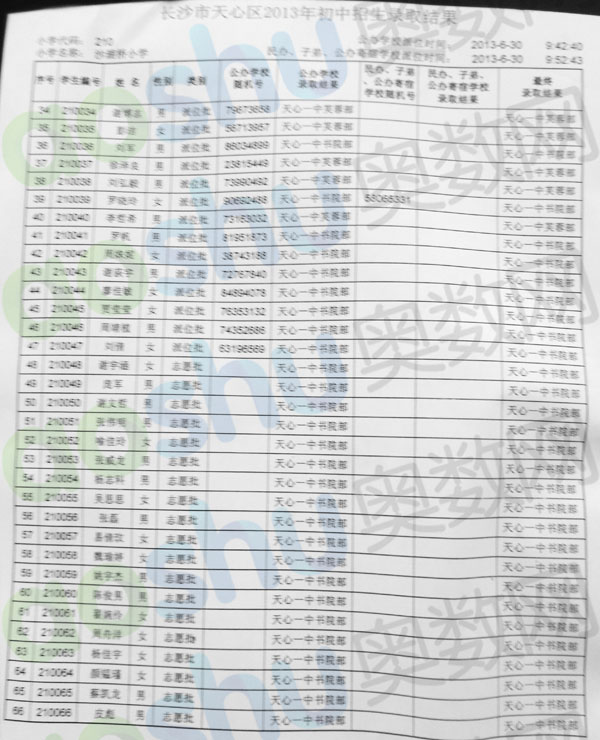 长沙市天心区2013年初中招生录取结果
小学代码： 210 公办学校派位时间： 2013-6-30 9:42:40
小学名称： 小学 民办、子弟、公办寄宿学校派位时间： 2013-6-30 9:52:43
序号 学生编号 姓 名 性别 类别 公办学校随机号 公办学校录取结果 民办、子弟、公办寄宿学校随机号 民办、子弟、公办寄宿学校录取结果 最终录取结果
34 210034 男 派位批 79673658 天心一中芙蓉部 天心一中芙蓉部
35 210035 男 派位批 56713957 天心一中芙蓉部 天心一中芙蓉部
36 210036 刘军 男 派位批 86034899 天心一中书院部 天心一中书院部
37 210037 男 派位批 23815449 天心一中芙蓉部 天心一中芙蓉部
38 210038 刘弘毅 男 派位批 73990492 天心一中芙蓉部 天心一中芙蓉部
39 210039 罗晓玲 女 派位批 90692488 天心一中书院部 58065331 天心一中书院部
40 210040 男 派位批 73153032 天心一中芙蓉部 天心一中芙蓉部
41 210041 罗帆 男 派位批 81951873 天心一中书院部 天心一中书院部
42 210042 女 派位批 38743188 天心一中书院部 天心一中书院部
43 210043 男 派位批 72767840 天心一中书院部 天心一中书院部
44 210044 廖佳敏 女 派位批 84894078 天心一中书院部 天心一中书院部
45 210045 女 派位批 76353132 天心一中书院部 天心一中书院部
46 210046 男 派位批 74352686 天心一中书院部 天心一中书院部
47 210047 刘倩 女 派位批 63196569 天心一中书院部 天心一中书院部
48 210048 谢宇涵 女 志愿批 天心一中书院部 天心一中书院部
49 210049 庞军 男 志愿批 天心一中书院部 天心一中书院部
50 210050 谢文哲 男 志愿批 天心一中书院部 天心一中书院部
51 210051 张伟明 男 志愿批 天心一中书院部 天心一中书院部
52 210052 喻佳玲 女 志愿批 天心一中书院部 天心一中书院部
53 210053 张威龙 男 志愿批 天心一中书院部 天心一中书院部
54 210054 杨志科 男 志愿批 天心一中书院部 天心一中书院部
55 210055 吴思思 女 志愿批 天心一中书院部 天心一中书院部
56 210056 张磊 男 志愿批 天心一中书院部 天心一中书院部
57 210057 女 志愿批 天心一中书院部 天心一中书院部
58 210058 魏瑜婷 女 志愿批 天心一中书院部 天心一中书院部
59 210059 姚宇杰 男 志愿批 天心一中书院部 天心一中书院部
60 210060 陈俊男 男 志愿批 天心一中书院部 天心一中书院部
61 210061 女 志愿批 天心一中书院部 天心一中书院部
62 210062 女 志愿批 天心一中书院部 天心一中书院部
63 210063 杨佳宇 女 志愿批 天心一中书院部 天心一中书院部
64 210064 女 志愿批 天心一中书院部 天心一中书院部
65 210065 蔡凯龙 男 志愿批 天心一中书院部 天心一中书院部
66 210066 皮彪 男 志愿批 天心一中书院部 天心一中书院部
aoshu 奥数网
aoshu 奥数网
aoshu 奥数网